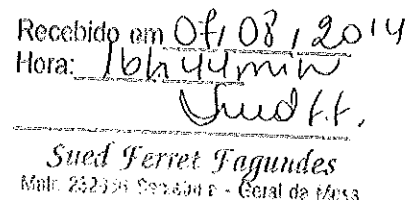 Recebido em 07, 08, 2014
Hora: 16h 44min
Sued f.f.
Sued Ferret Fagundes
Matr. - Geral da Mesa